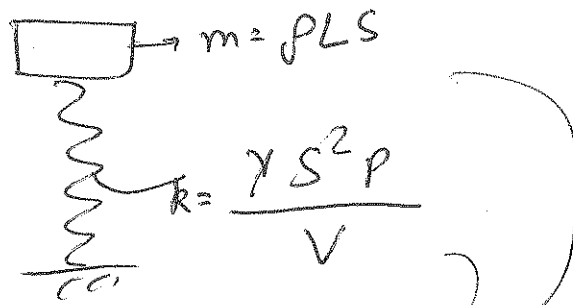 m = ρLS
k = γ S² P / V